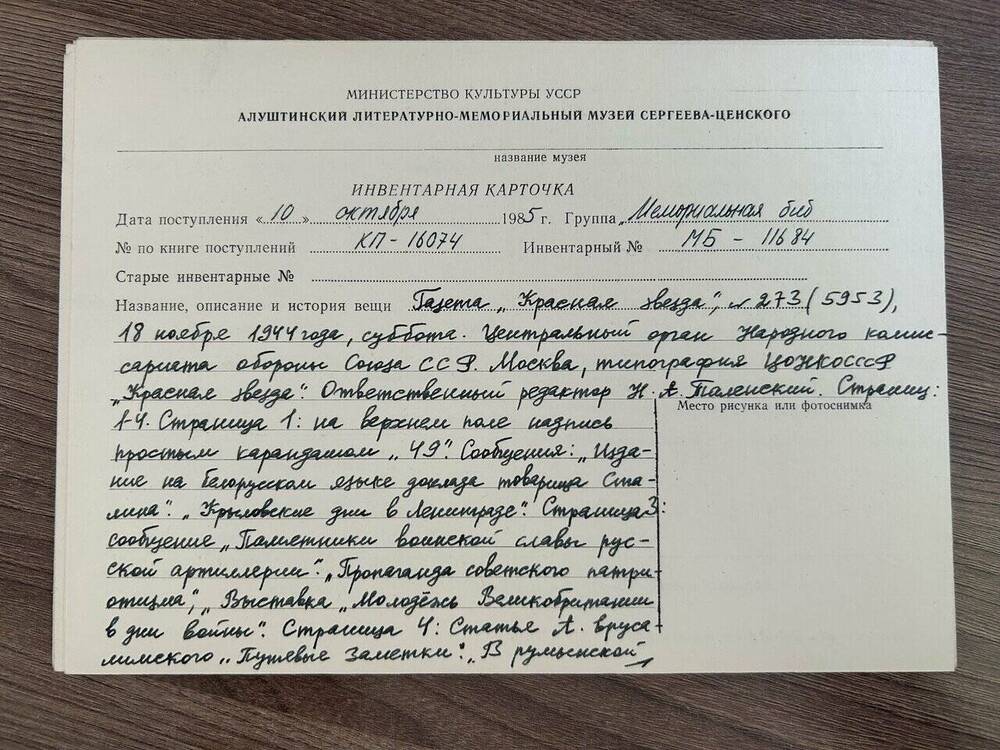 МИНИСТЕРСТВО КУЛЬТУРЫ УССР
АЛУШТИНСКИЙ ЛИТЕРАТУРНО-МЕМОРИАЛЬНЫЙ МУЗЕЙ СЕРГЕЕВА-ЦЕНСКОГО
название музея
ИНВЕНТАРНАЯ КАРТОЧКА
Дата поступления «10» октября 1985 г. Группа „Мемориальная биб
№ по книге поступлений КП - 16074 Инвентарный № МБ - 11684
Старые инвентарные №
Название, описание и история вещи Газета „Красная звезда", № 273 (5953),
18 ноября 1944 года, суббота. Центральный орган Народного комис-
сариата обороны Союза ССР. Москва, типография
„Красная звезда". Ответственный редактор Н. А. Таленский. Страниц:
Место рисунка или фотоснимка
1-4. Страница 1: на верхнем поле надпись
простым карандашом „49". Сообщения: „Изда-
ние на белорусском языке доклада товарища Ста-
лина". „Крыловские дни в Ленинграде". Страница 3:
сообщение „Памятники воинской славы рус-
ской артиллерии". „Пропаганда советского патри-
отизма", „Выставка „Молодёжь Великобритании
в дни войны". Страница 4: Статья А. Еруса-
лимского „Путевые заметки". „В румынской